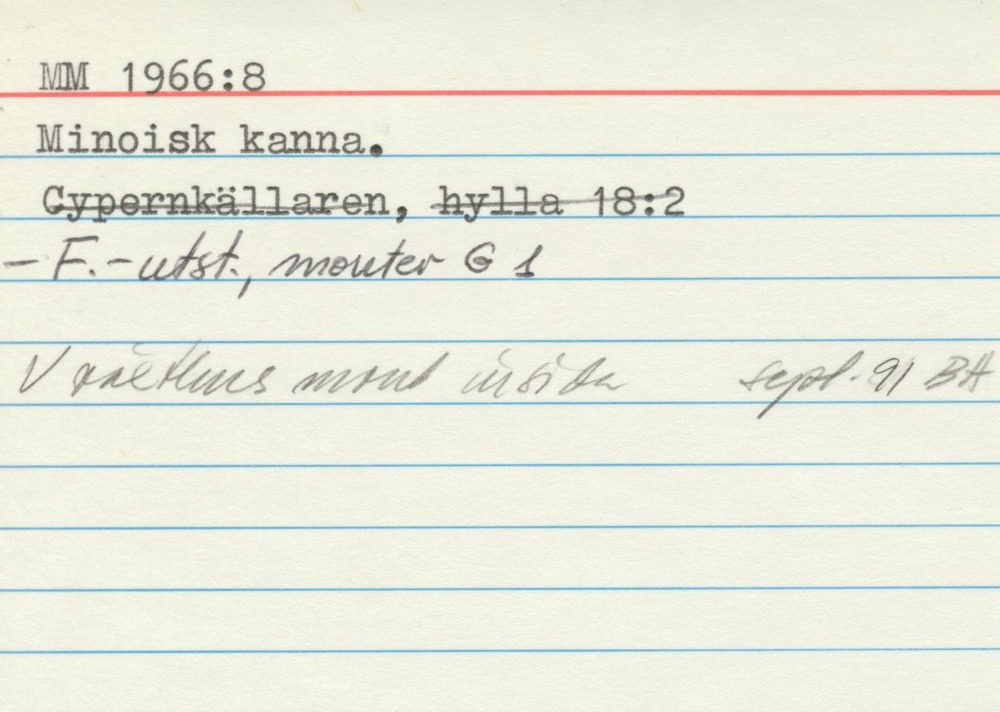 MM 1966:8
Minoisk kanna.
Cypernkällaren, hylla 18:2
– F.-utst., monter G 1
V mont insida sept. 91 BH